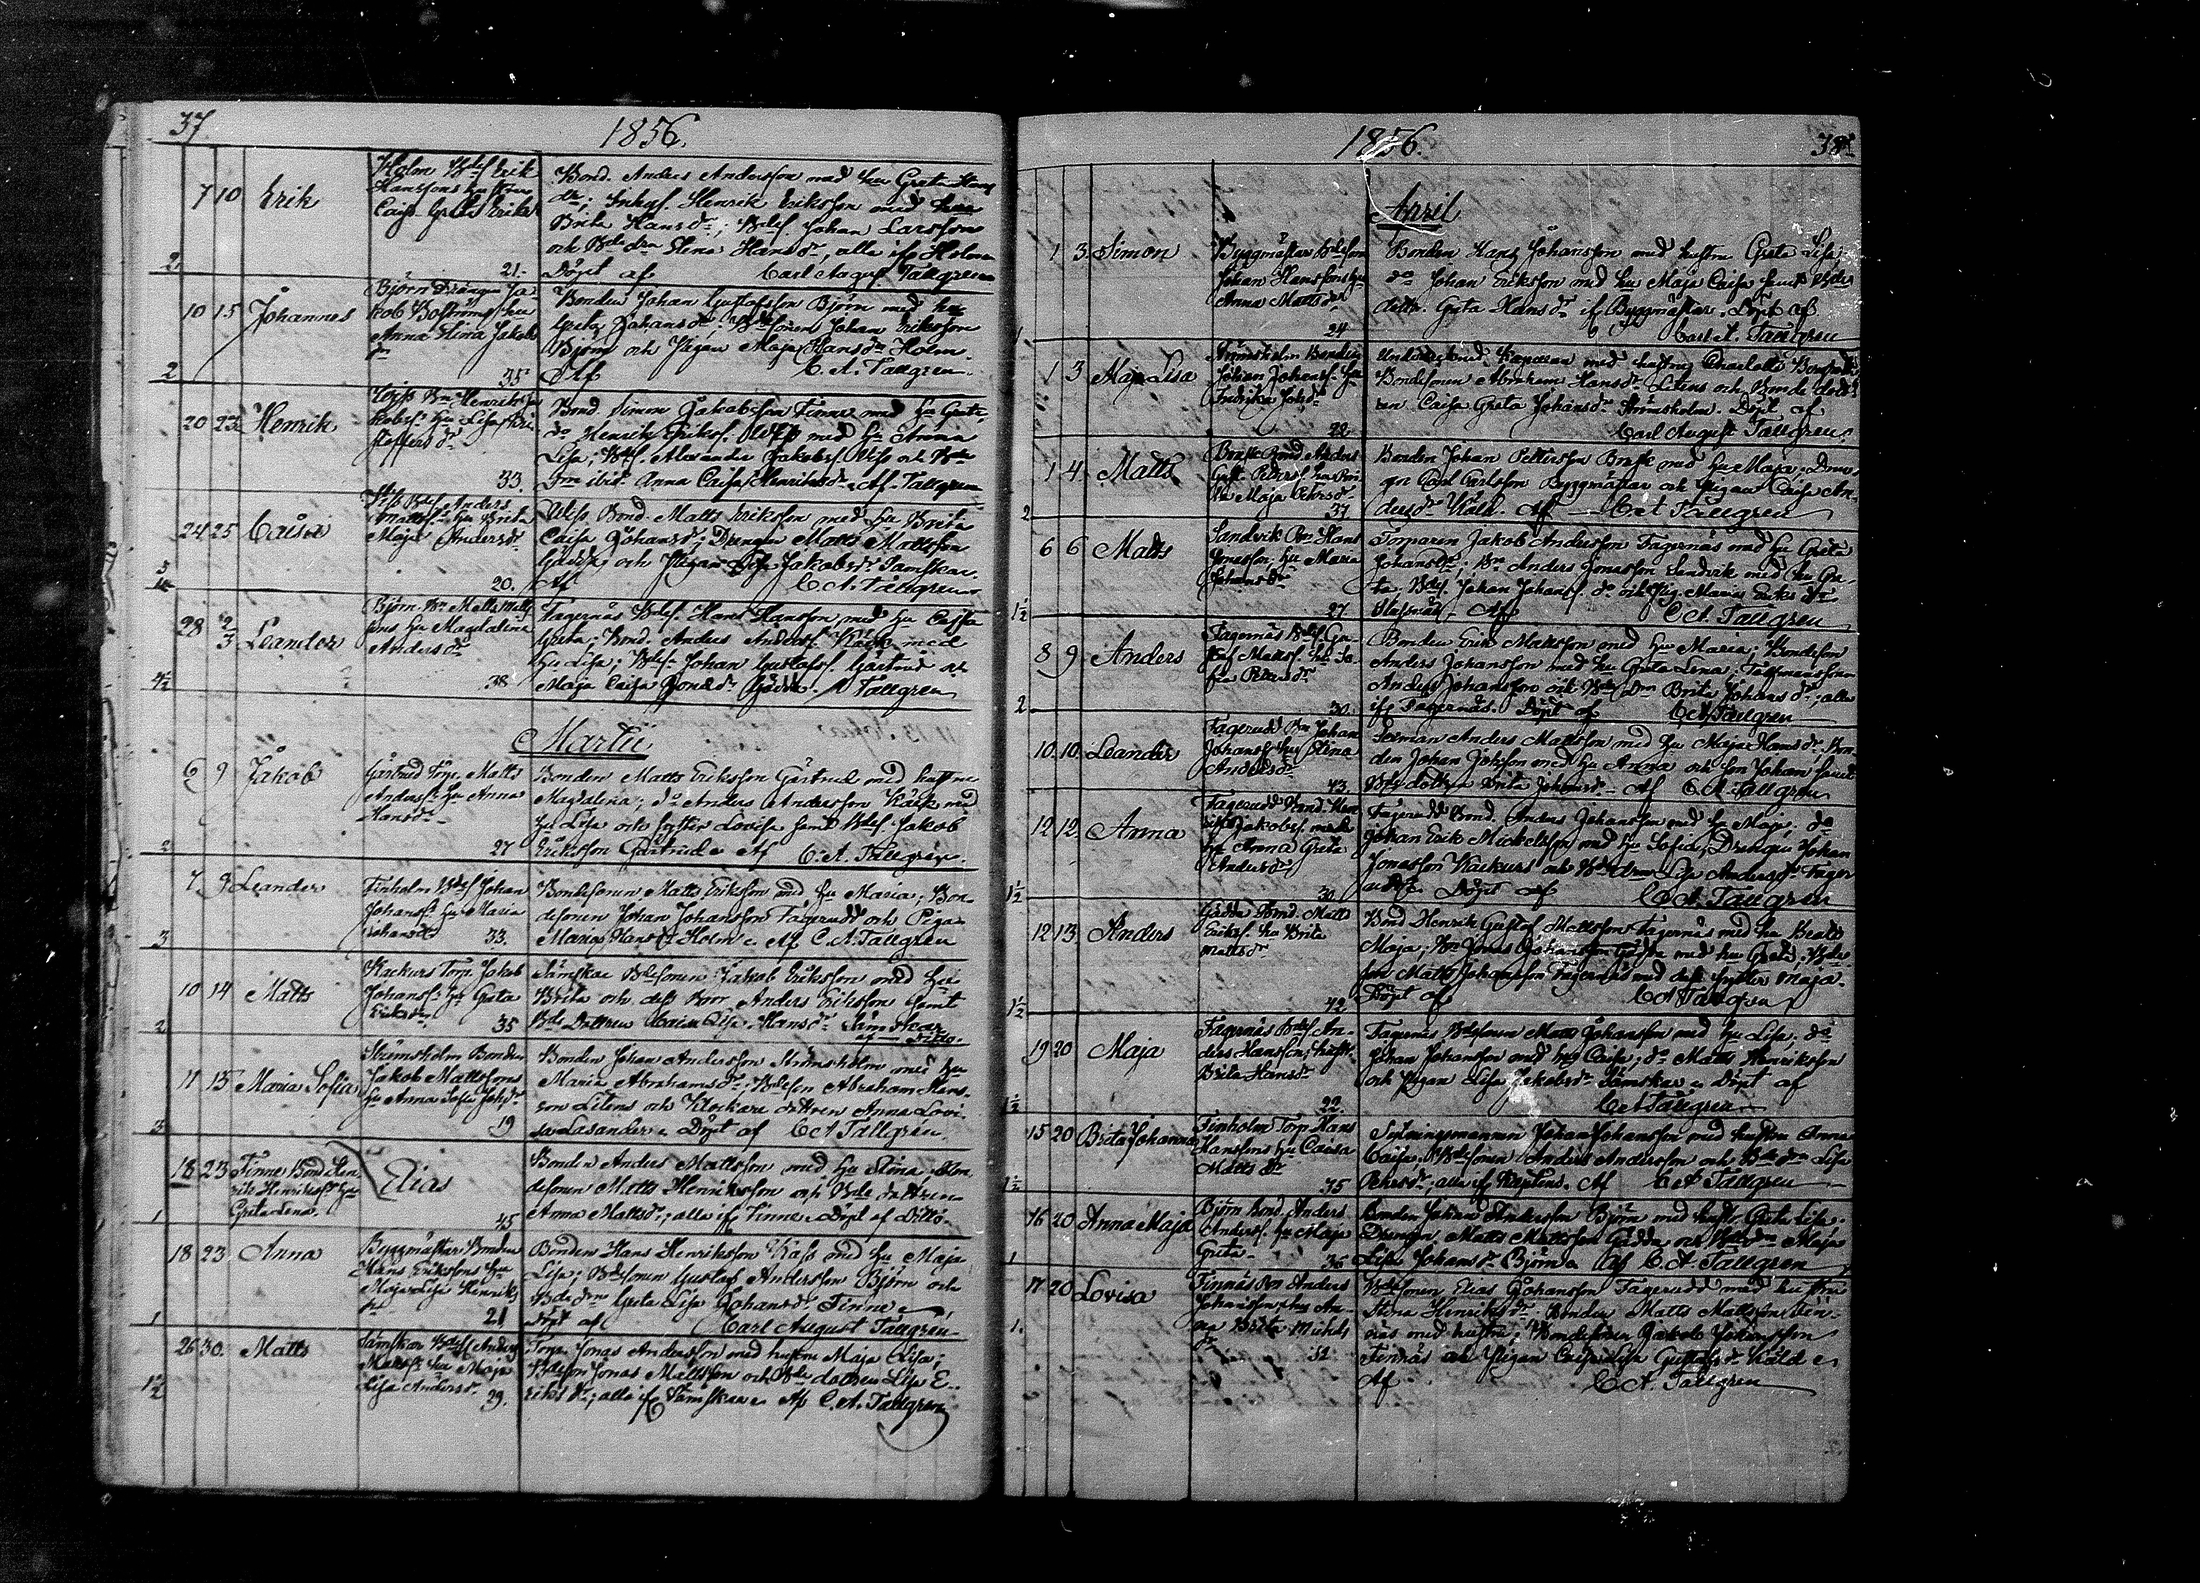 37.
1856.
7 10 Erik
Holm Bdsf Erik
Hanssons hu
Caisa Greta Eriks
21.
2.
Bond. Anders Andersson med hu Greta Hans
dr; Inhys. Henrik Eriksson med hu
Brita Hansdr; Bdsf Johan Larsson
och Bde drn Stina Hansdr, alla ifr Holm.
Döpt af Carl August Tallgren
10 15 Johannes
Björn Drängen Ja-
kob Boströms hu
Anna Stina Jakobs
dr
35
2
Bonden Johan Gustafsson Björn med hu
Greta Johansdr; Bdsonen Johan Eriksson
Björn och Pigan Maja Hansdr Holm.
Af C. A. Tallgren.
20 23 Henrik
Bn Henrik Ja
kobss. hu Lisa Kri
stoffersdr
33.
Bond. Simon Jakobsson Finne med hu Greta,
do Henrik Erikss. med hu Anna
Lisa; Bdsf. Alexander Jakobsf. och Bde
drn ibid. Anna Caisa Henriksdr. Af Tallgren
24 25 Caisa
Bdsf Anders
Mattss. hu Brita
Maja Andersdr
20.
Bond. Matts Eriksson med hu Brita
Caisa Johansdr; Drängen Matts Mattsson
Gädda och Pigan Lisa Jakobsdr Sämskar.
Af C. A. Tallgren
28 2/3 Leander
Björn Bn Matts Matts
sons hu Magdalena
Andersdr
38
4½
Fagernäs Bdsf. Hans Hansson med hu Caisa
Greta; Bond. Anders Anderss. Käck med
hu Lisa; Bdsf. Johan Gustafss. Gärtrud och
Maja Caisa Jonædr Gädda. Af Tallgren
Martii
6 9 Jakob
Gärtrud Torp. Matts
Anderss. hu Anna
Hansdr
27
2
Bonden Matts Eriksson Gärtrud med hustru
Magdalena; do Anders Andersson Käck med
hu Lisa och syster Lovisa samt Bdsf. Jakob
Eriksson Gärtrud. Af C. A. Tallgren.
7 9 Leander
Finholm Bdsf Johan
Johanss. hu Maria
Johansdr
33.
3
Bondesonen Matts Eriksson med hu Maria; Bon-
desonen Johan Johansson Fagerudd och Piga
Maria Hansdr Holm. Af C. A. Tallgren
10 14 Matts
Kackurs Torp. Jakob
Johanss. hu Greta
Eriksdr
35
2
Sämskar Bdesonen Jakob Eriksson med hu
Brita och dess bror Anders Eriksson samt
Bde dottren Caisa Lisa Hansdr Sämskar
af Ditto.
11 15 Maria Sofia
Strömsholm Bonden
Jakob Mattssons
hu Anna Sofia Johsdr
19
3
Bonden Johan Andersson Strömsholm med hu
Maria Abrahamsdr; Bdeson Abraham Hans-
son Litens och Klockare dottren Anna Lovi-
sa Lasander. Döpt af C A Tallgren.
18 23 Elias
Finne Bond Hen
rik Henrikss. hu
Greta Lena.
45
1
Bonden Anders Mattsson med hu Stina, Bon
desonen Matts Henriksson och Bde dottren
Anna Mattsdr; alla ifr Finne. Döpt af Ditto.
18 23 Anna
Byggmästar Bonden
Hans Erikssons hu
Maja Lisa Henriks
dr
21
1
Bonden Hans Henriksson Käss med hu Maja
Lisa; Bdesonen Gustaf Andersson Björn och
Bde drn Greta Lisa Johansdr Finne.
Döpt af Carl August Tallgren
26 30. Matts
Sämskar Bdsf Anders
Mattss. hu Maja
Lisa Andersdr
29.
1½
Torp. Jonas Andersson med hustru Maja Lisa;
Bdeson Jonas Mattsson och Bde dottren Lisa E-
riksdr; alla ifr Sämskar. Af C. A. Tallgren
1856.
38.
April
1 3 Simon
Byggmästar Bdeson
Johan Hanssons hu
Anna Mattsdr
24
1
Bonden Hans Johansson med hustru Greta Lisa,
do Johan Eriksson med hu Maja Caisa samt Bde
dottr. Greta Hansdr ifr Byggmästar. Döpt af
Carl A. Tallgren
1 3 Maja Lisa
Strömsholm Bonden
Johan Johanss. hu
Fredrika Johsdr
22
Undertecknad Kapellan med hustru Charlotta
Bondesonen Abraham Litens och Bonde dott
ren Caisa Greta Johansdr Strömsholm. Döpt af
Carl August Tallgren.
1 4 Matts
Brask Bond Anders
Gust. Peterss. hu Bri
ta Maja Petersdr
37
2
Bonden Johan Pettersson Brask med hu Maja; Drän
gen Carl Carlsson Byggmästar och Pigan Caisa An
dersdr Käld. Af C A Tallgren
6 6 Matts
Sandvik Bn Hans
Jonasson, hu Maria
Johansdr
27
1½
Torparen Jakob Andersson Fagernäs med hu Greta
Johansdr; Bn Anders Jonasson Sandvik med hu Gre-
ta, Bdsf. Johan Johanss. do och Pig. Maria Eriksdr
Af C A Tallgren
8 9 Anders
Fagernäs Bdsf. Gu-
staf Mattss. hu So
fia Petersdr
30.
2
Bonden Erik Mattsson med hu Maria; Bondeson
Anders Johansson med hu Greta Lena;
Anders Johansson och Bde drn Brita Johansdr; alla
ifr Fagernäs. Döpt af C A Tallgren
10 10 Leander
Fagerudd Bn Johan
Johanss hu Stina
Andersdr
43.
Anders Mattsson med hu Maja Hansdr, Bon
den Johan Johsson med hu Anna och son Johan samt
Bde dottren Brita Johansdr. Af C A Tallgren
12 12 Anna
Fagerudd Bond. Hen
rik Jakobss. med
hu Anna Greta
Andersdr
30
1½
Fagerudd Bond. Anders Johansson med hu Maja, do
Johan Erik Mickelsson med hu Sofia, Drängen Johan
Jonasson Kackurs och Bde drn Lisa Andersdr Fager
udd. Döpt af C A Tallgren
12 13 Anders
Gädda Bond. Matts
Erikss. hu Brita
Mattsdr
42
1½
Bond Henrik Gustaf Mattsson Fagernäs med hu Beata
Maja; Bn Jonas Johansson Gädda med hu Greta; Bde
son Matts Johansson Fagernäs med dess syster Maja.
Döpt af C A Tallgren
19 20 Maja
Fagernäs Bdsf. An-
ders Hansson; hustr.
Brita Hansdr
22.
1½
Fagernäs Bdesonen Matts Johansson med hu Lisa; do
Johan Johansson med hu Caisa; do Matts Henriksson
och Pigan Lisa Jakobsdr Sämskar. Döpt af
C A Tallgren
15 20 Brita Johanna
Finholm Torp Hans
Hanssons hu Caisa
Mattsdr
35
1½
Sexmingsmannen Johan Johansson med hustru Anna
Caisa. Bdesonen Anders Andersson och Bde drn Lisa
Petersdr; alla ifr Kaptens. Af C A Tallgren
16 20 Anna Maja
Björn Bond. Anders
Anderss. hu Maja
Greta
36
1
Bonden Johan Andersson Björn med hustr. Greta Lisa.
Drängen Matts Mattsson Gädda och Bde drn Maja
Lisa Johansdr Björn. Af C. A. Tallgren
17 20 Lovisa
Finnäs Bn Anders
Johansson, hu An-
na Brita Mickels
dr
32
1.
Bdesonen Elias Johansson Fagerudd med hustru
Stina Henriksdr. Bonden Matts Mattsson Fin-
näs med hustru; Bondesonen Jakob Johansson
Finnäs och Pigan Caisa Lisa Gustafsdr Käld.
Af C A. Tallgren